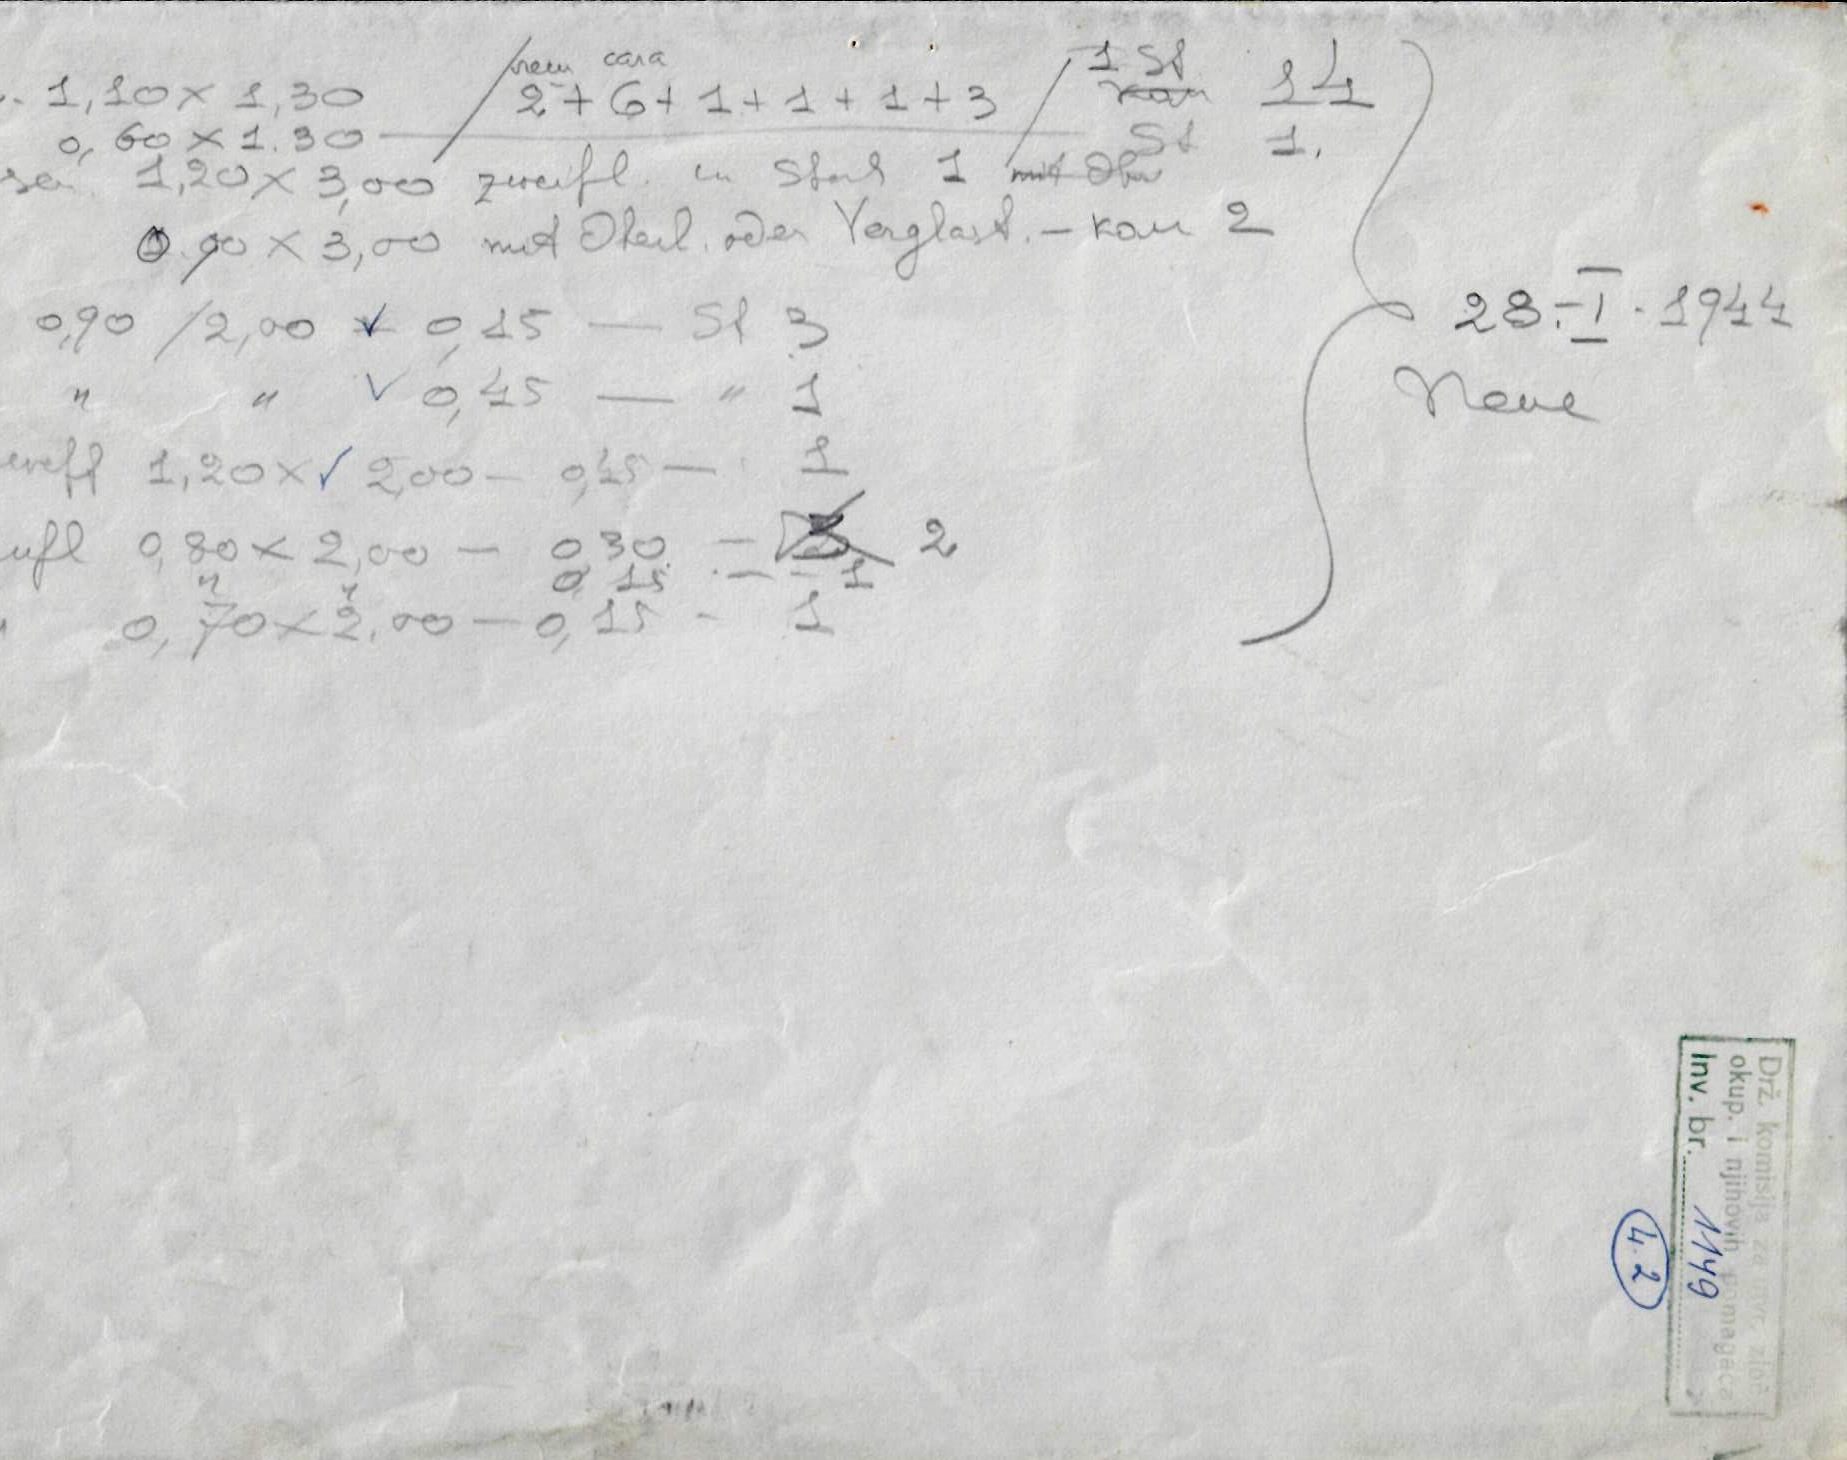 1,10 x 1,30 / 2 + 6 + 1 + 1 + 1 + 3 / 1 St 14
0,60 x 1.30 — St 1.
1,20 x 3,00 zweifl. in Stock 1 mit Ober
0.90 x 3,00 mit Oberl. oder Verglast. – kom 2
0,90 / 2,00 ✓ 0,15 — St 3
" " ✓ 0,45 — " 1
1,20 x ✓ 2,00 – 0,45 — 1
ufl 0,80 x 2,00 – 0,30 – 2
" " 0,15 – – 1
0,70 x 2,00 – 0,15 - 1
28.-I-1944
Drž. komisija za utvr. zloč.
okup. i njihovih pomagača
Inv. br. 1149
4.2